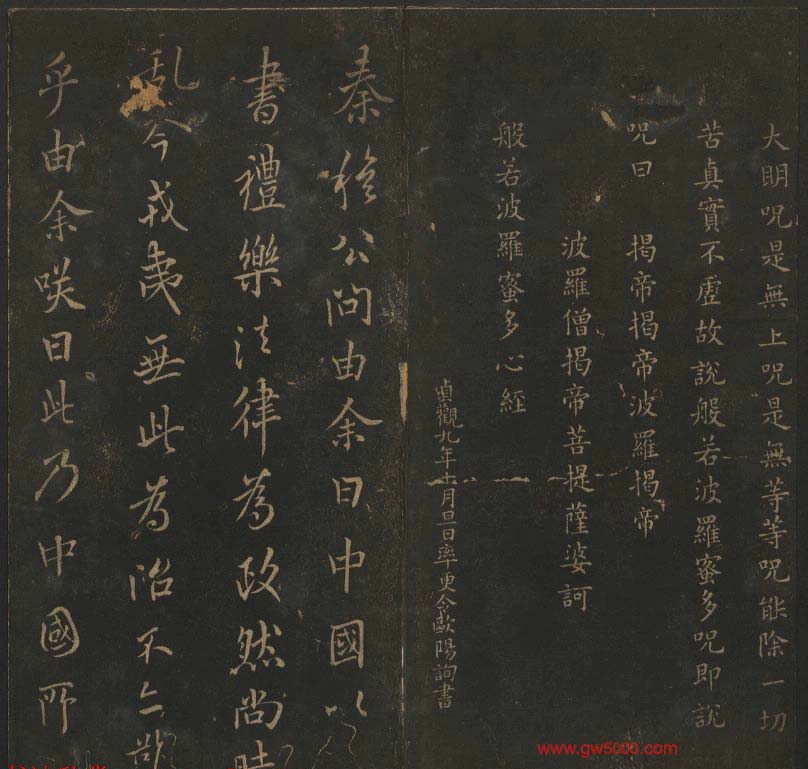 大明咒是無上咒是無等等咒能除一切
苦真實不虛故說般若波羅蜜多咒即說
咒曰 揭帝揭帝波羅揭帝
波羅僧揭帝菩提薩婆訶
般若波羅蜜多心經
貞觀九年十月旦日率更令歐陽詢書
秦穆公問由余曰中國以
書禮樂法律為政然尚時
乱今戎夷無此為治不亦難
乎由余咲曰此乃中國所
www.gw5000.com